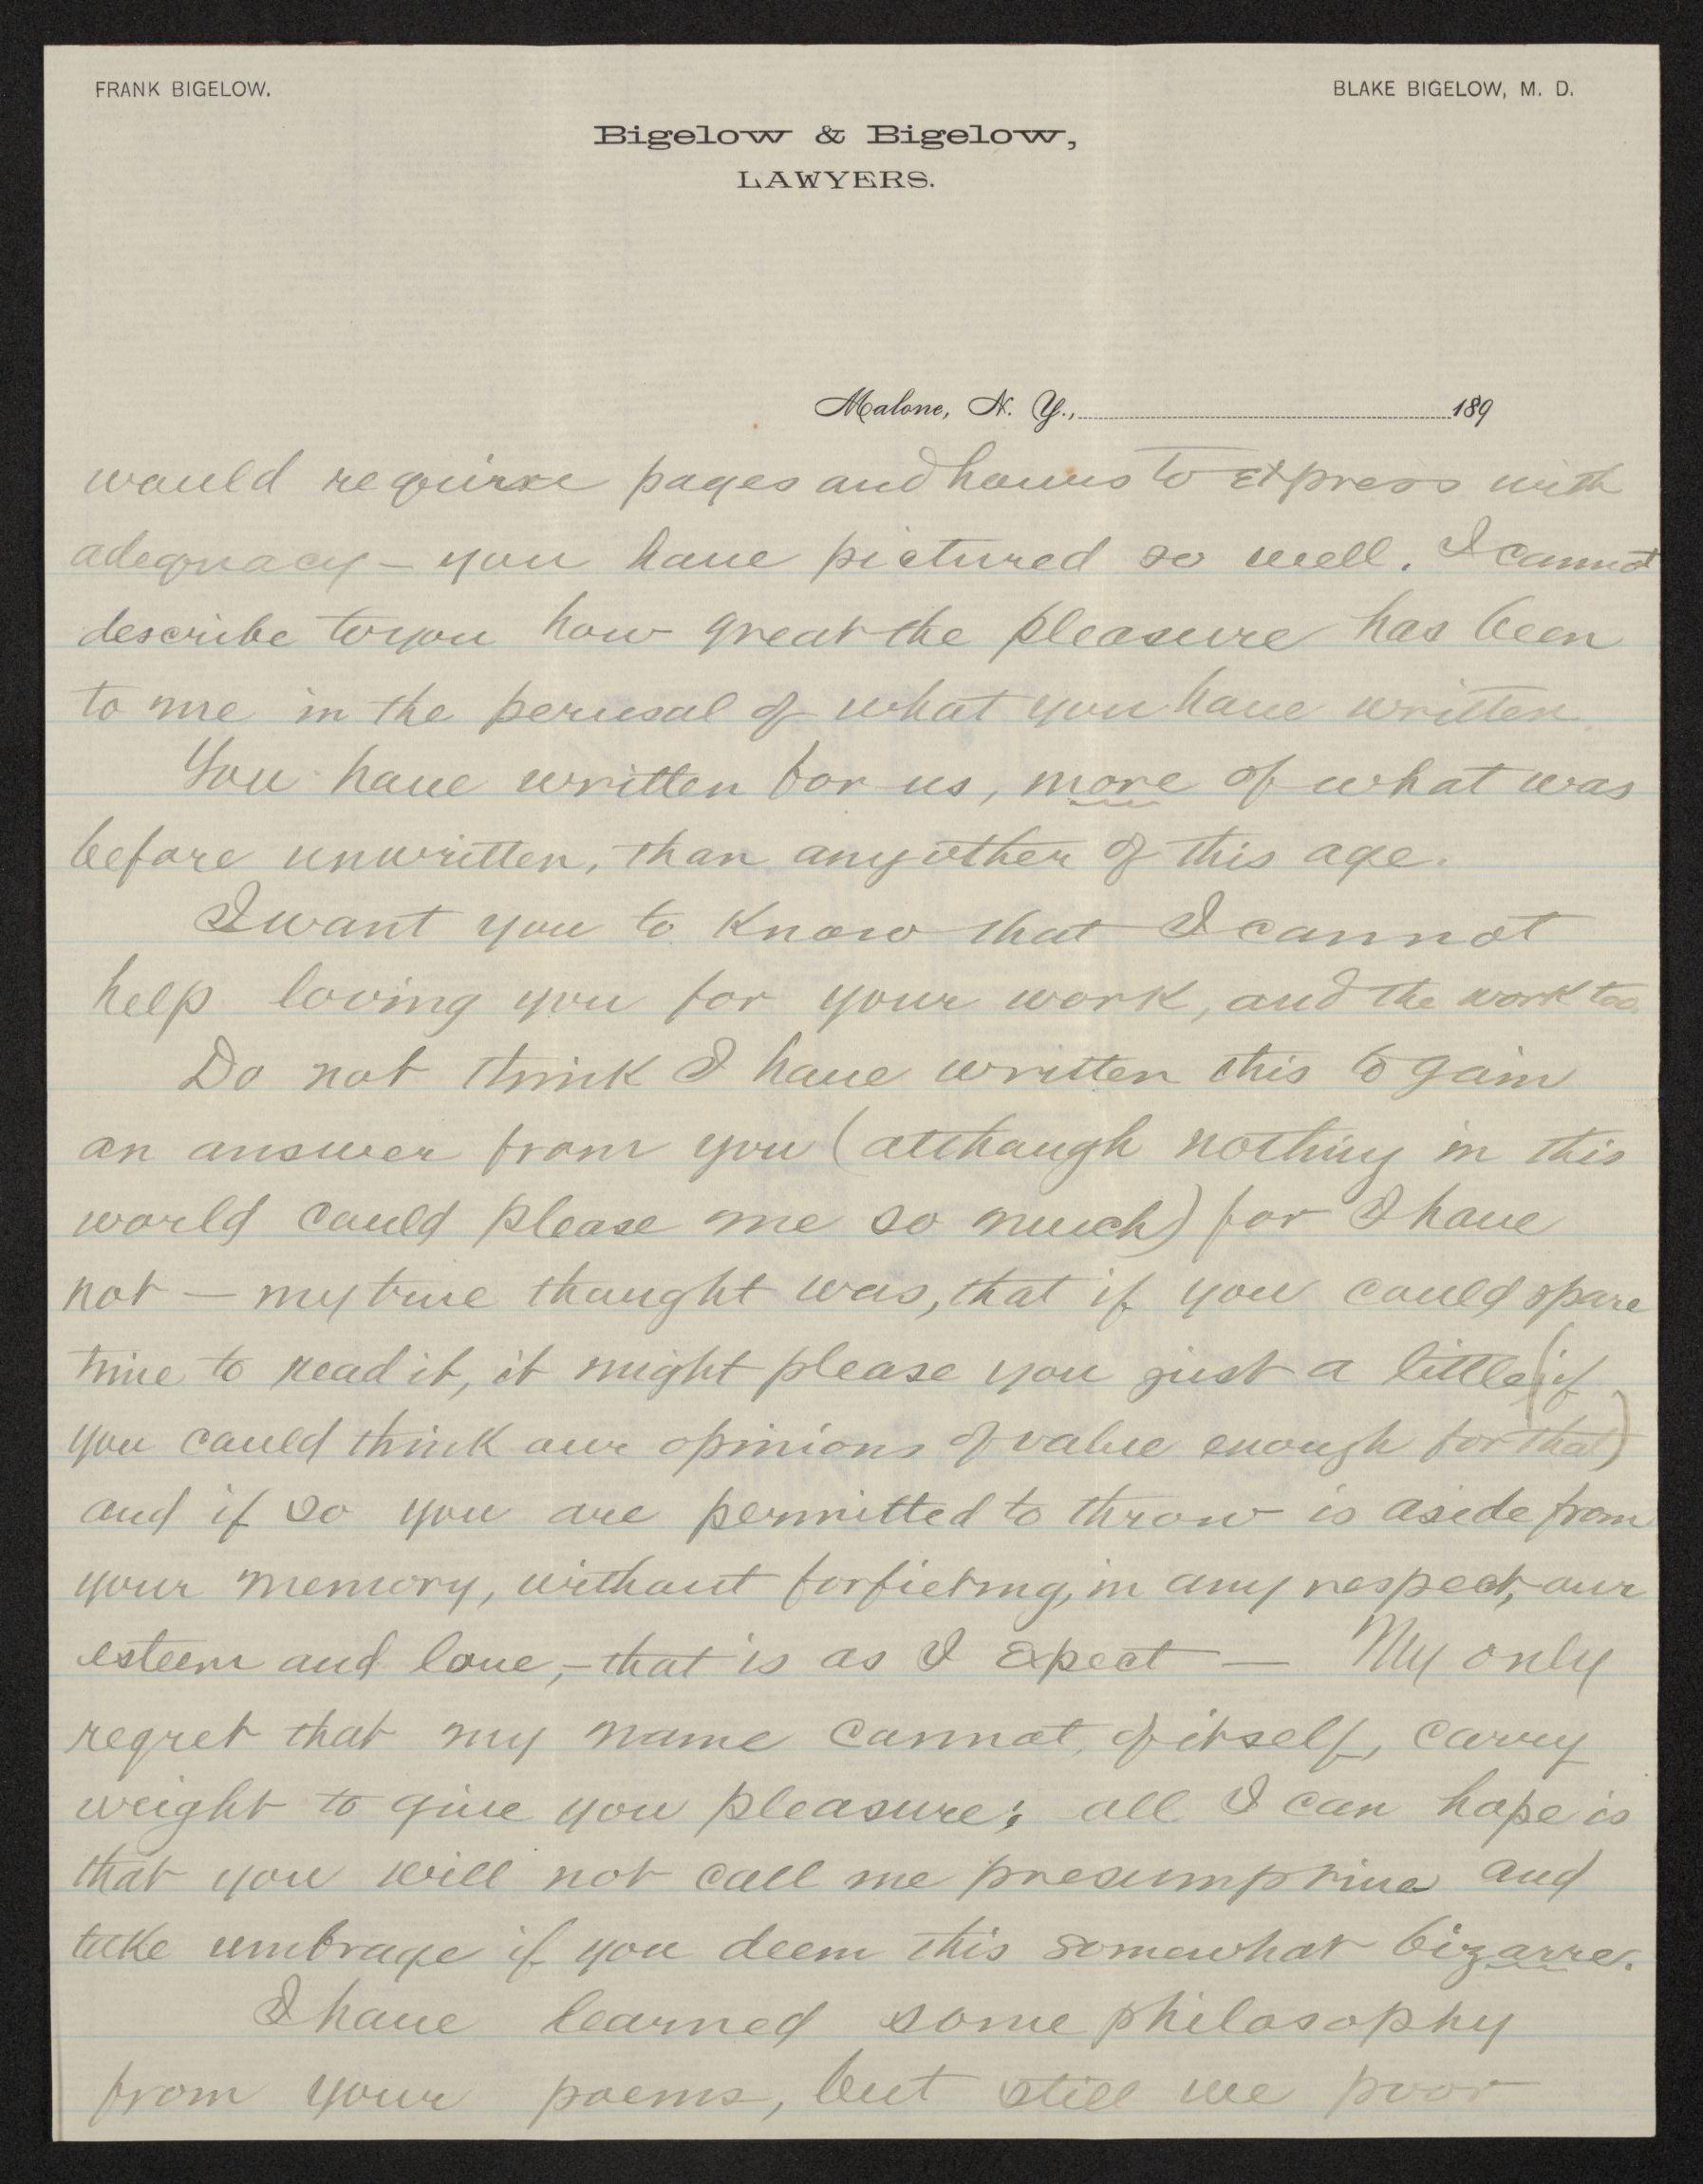 FRANK BIGELOW.
BLAKE BIGELOW, M. D.
Bigelow & Bigelow,
LAWYERS.
Malone, N. Y., 189
would require pages and hours to express with
adequacy – you have pictured so well. I cannot
describe to you how great the pleasure has been
to me in the perusal of what you have written
You have written for us, more of what was
before unwritten, than any other of this age.
I want you to know that I cannot
help loving you for your work, and the work too.
Do not think I have written this to gain
an answer from you (although nothing in this
world could please me so much) for I have
not – my true thought was, that if you could spare
time to read it, it might please you just a little (if
you could think our opinions of value enough for that)
and if so you are permitted to throw is aside from
your memory, without forfieting, in any respect, our
esteem and love, – that is as I expect — My only
regret that my name cannot, of itself, carry
weight to give you pleasure; all I can hope is
that you will not call me presumptive and
take umbrage if you deem this somewhat bizarre.
I have learned some philosophy
from your poems, but still we poor